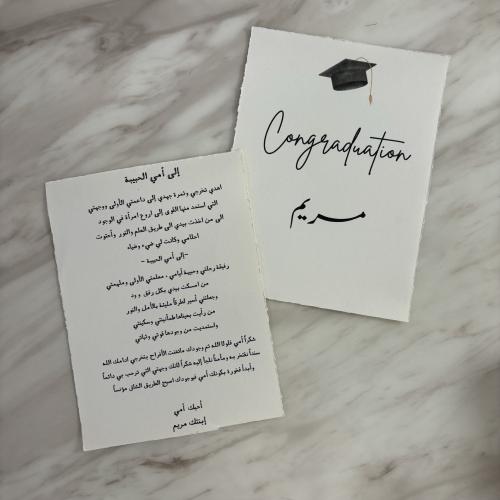 Congraduation
مريم
إلى أمي الحبيبة
اهدي تخرجي وثمرة جهدي إلى داعمتي الأولى ووجهتي
التي استمد منها القوى إلى اروع امرأة في الوجود
الى من اخذت بيدي الى طريق العلم والنور وأحتوت
احلامي وكانت لي ضيء وضياء
-إلى أمي الحبيبة -
رفيقة رحلتي وحبيبة أيامي ، معلمتي الأولى وملهمتي
من امسكت بيدي بكل رفق و ود
وجعلتني أسير لطرقاً مليئة بالأمل والنور
من رأيت بعيناها طمأنينتي وسكينتي
واستمديت من وجودها قوتي وثباتي
شكراً أمي فلولا الله ثم وجودك ماتمت الأفراح بتخرجي ادامك الله
سنداً نفتخر به ومأمناً نلجأ إليه شكراً لأنك وجهتي التي ترحب بي دائماً
وأبداً فخورة بكونك أمي فبوجودك اصبح الطريق الشاق مؤنساً
أحبك أمي
إبنتك مريم